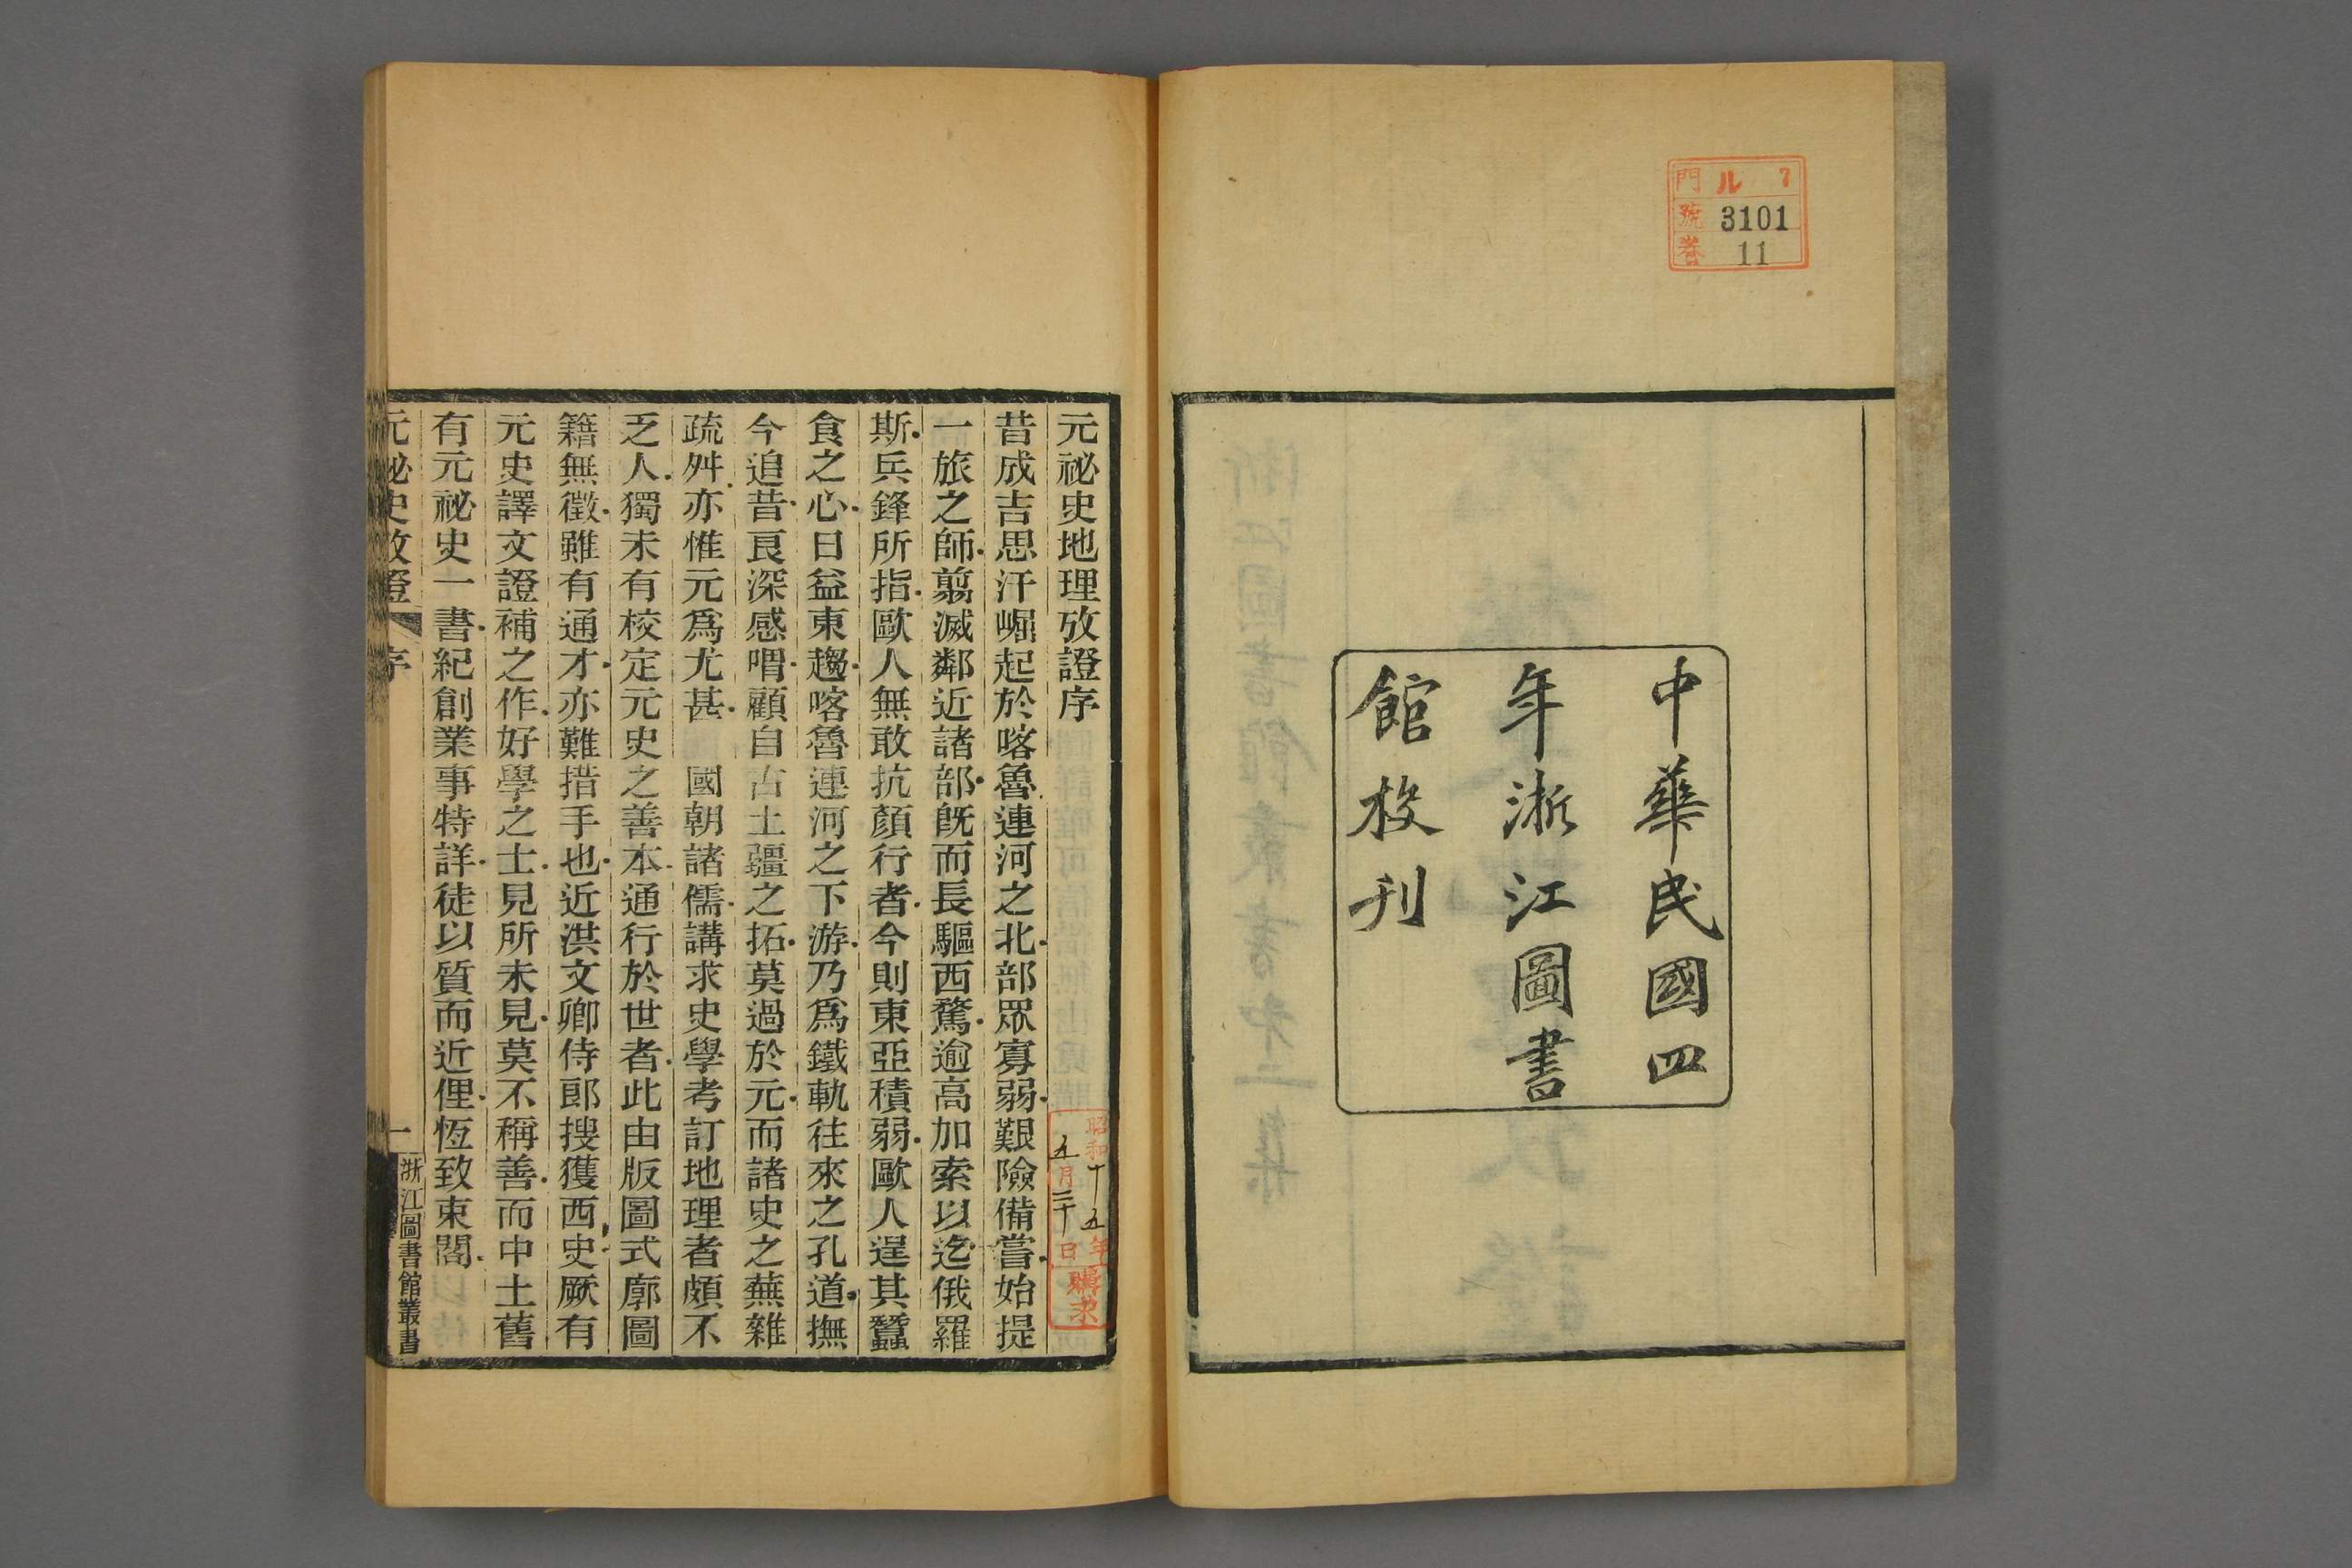 門 ル 7
號 3101
巻 11
中華民國四
年浙江圖書
館校刊
元祕史地理攷證序
昔成吉思汗崛起於喀魯連河之北部眾寡弱艱險備嘗始提
一旅之師翦滅鄰近諸部旣而長驅西騖逾高加索以迄俄羅
斯兵鋒所指歐人無敢抗顏行者今則東亞積弱歐人逞其蠶
食之心日益東趨喀魯連河之下游乃爲鐵軌往來之孔道撫
今追昔良深感喟顧自古土疆之拓莫過於元而諸史之蕪雜
疏舛亦惟元爲尤甚 國朝諸儒講求史學考訂地理者頗不
乏人獨未有校定元史之善本通行於世者此由版圖式廓圖
籍無徵雖有通才亦難措手也近洪文卿侍郎搜獲西史厥有
元史譯文證補之作好學之士見所未見莫不稱善而中土舊
有元祕史一書紀創業事特詳徒以質而近俚恆致束閣
元祕史攷證 序 一 浙江圖書館叢書
昭和十五年
五月三十日
購求